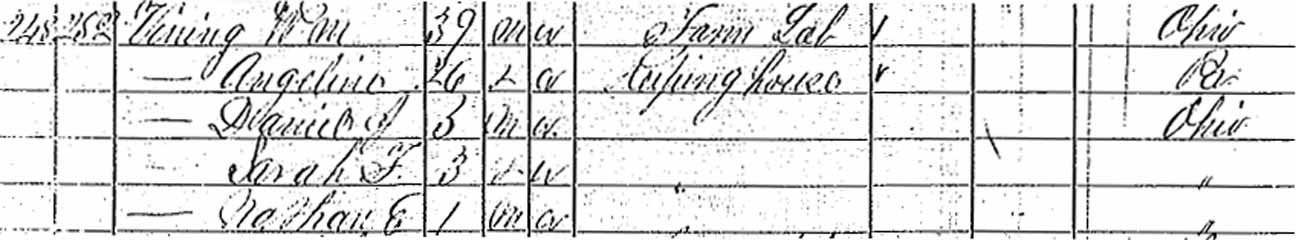 248 252 Vining Wm 39 m w Farm Lab 1 Ohio
— Angeline 26 f w Keeping house Pa
— Daniel 3 m w Ohio
— Sarah F. 3 f w "
— Nathan E 1 m w "